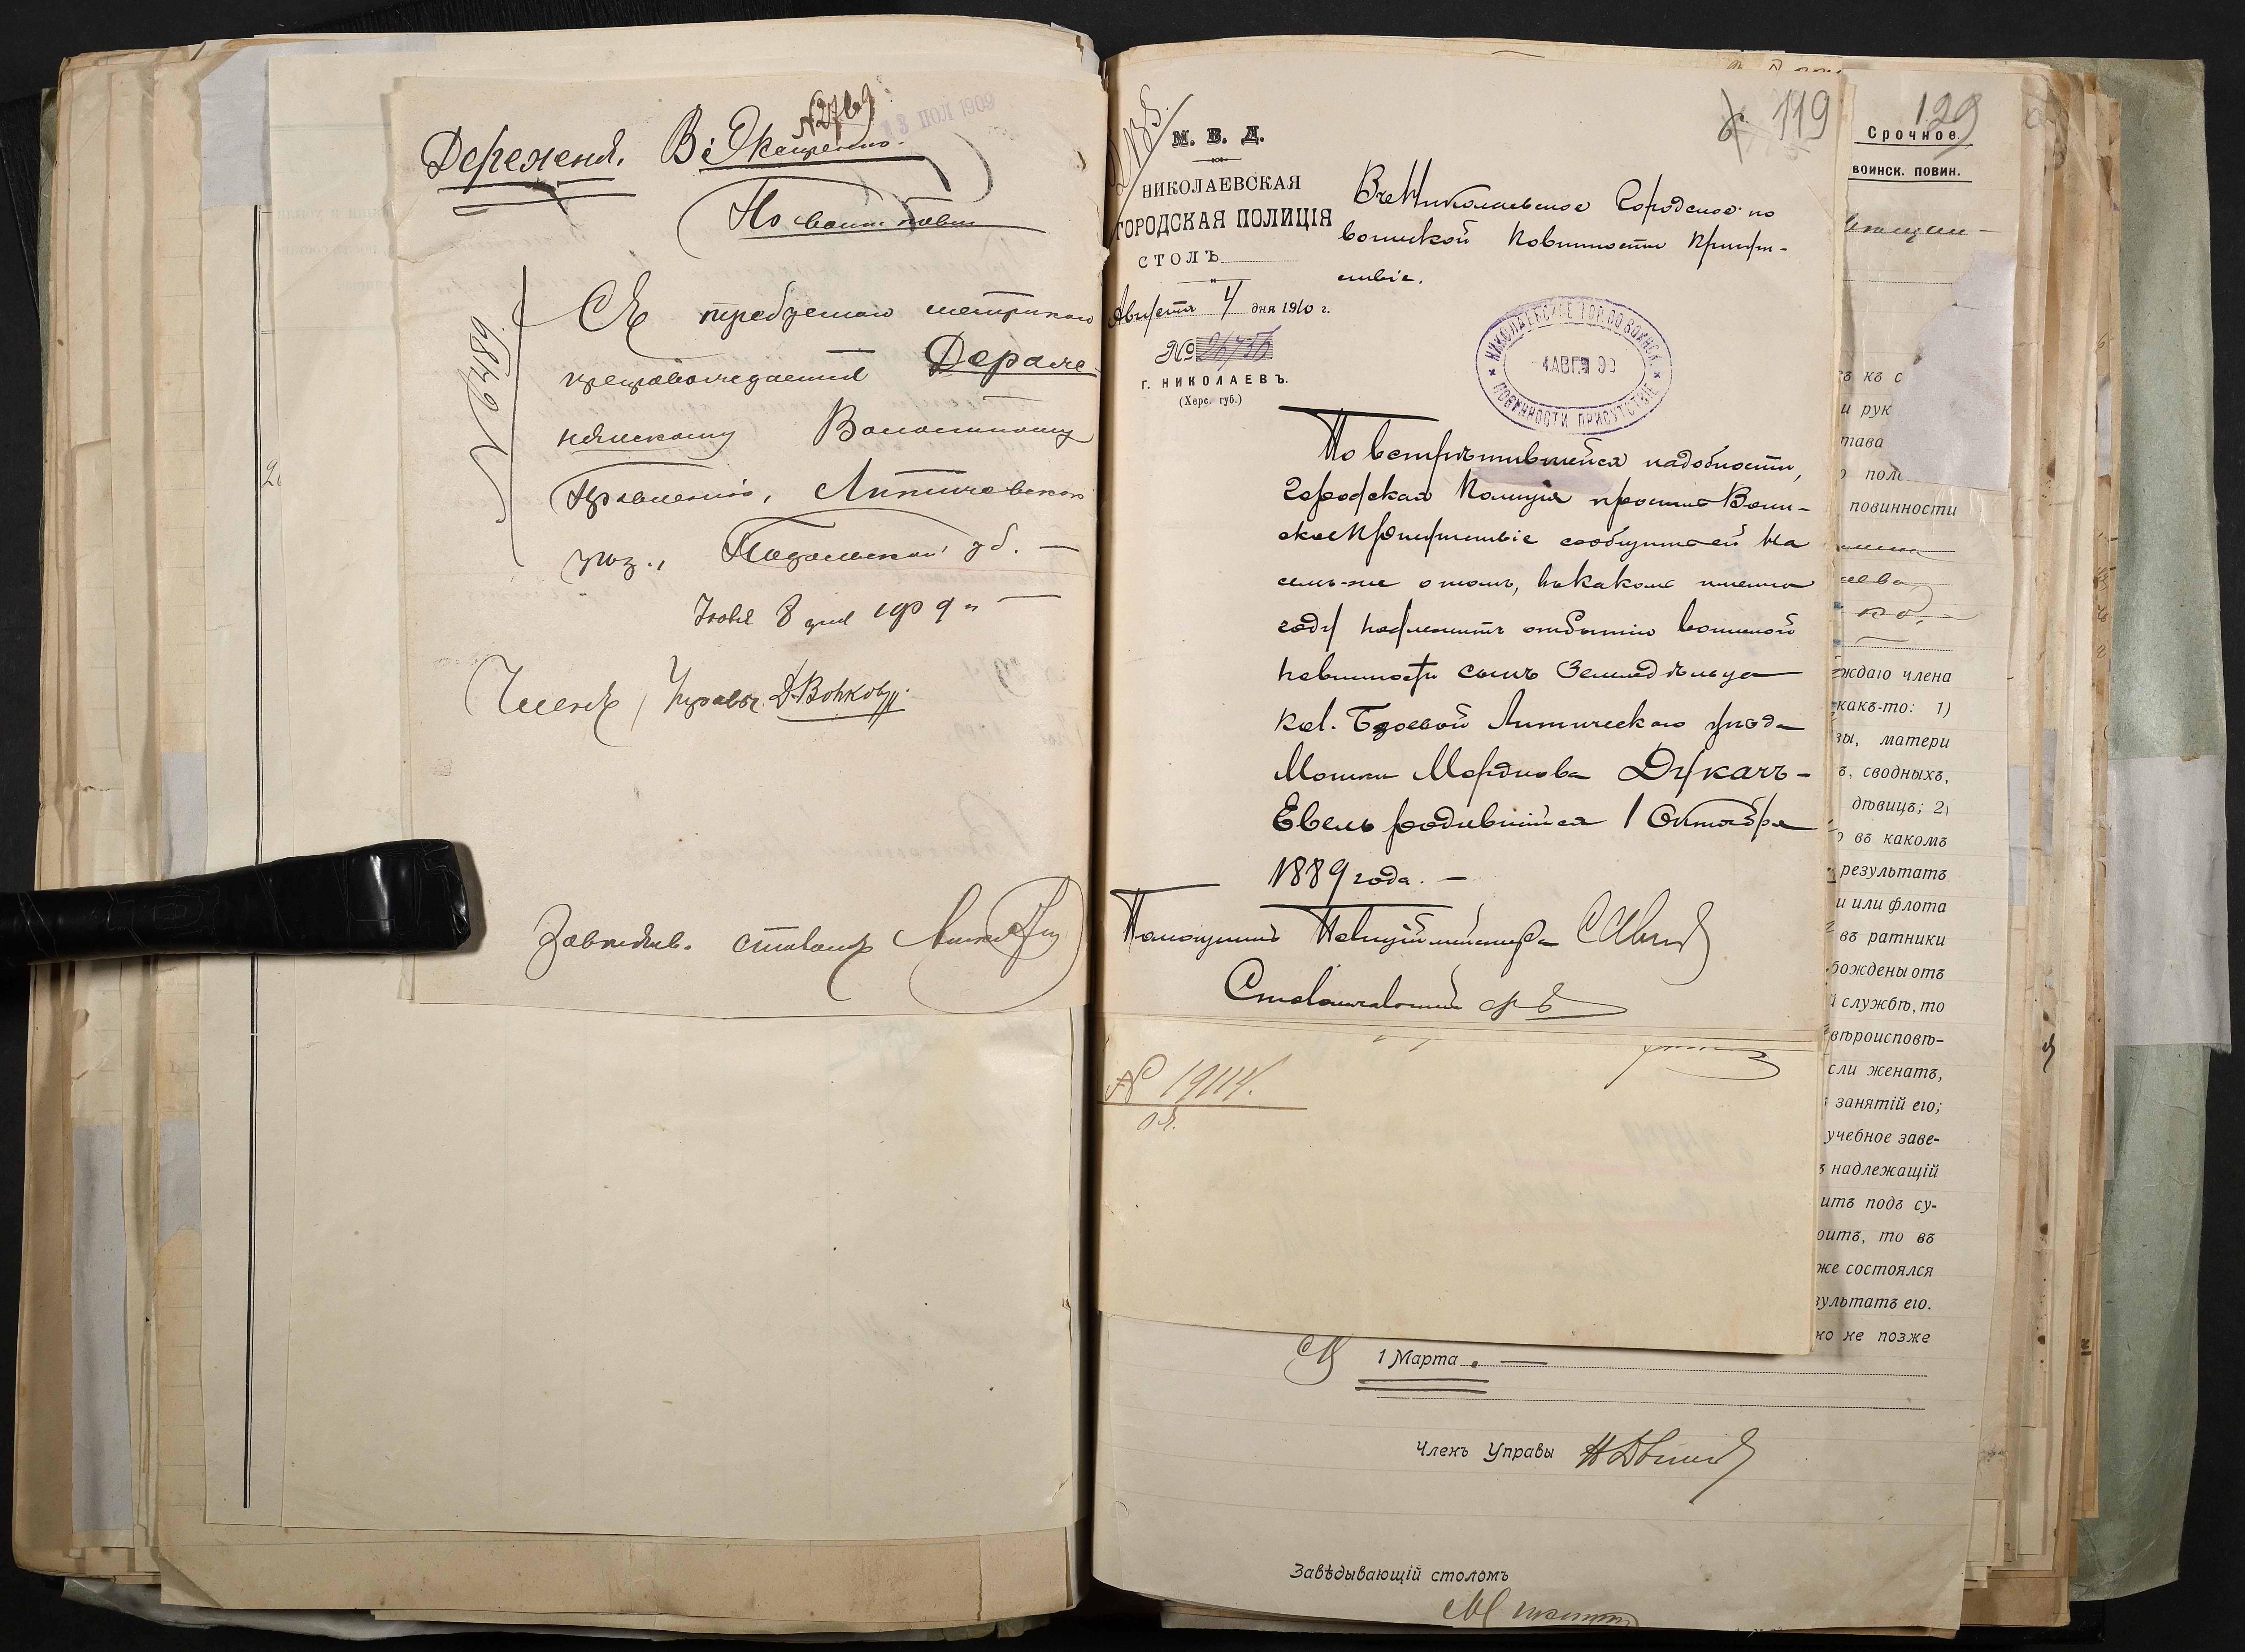 № 2769
13 ІЮЛ 1909
Деражня. В. Экстренно.
По воин. повин.
№ 9489
Съ требуемою метрикою
препровождается Дераж-
нянскому Волостному
Правленію, Летичевскаго
уѣз., Подольской губ. —
Іюля 8 дня 1909 г. —
Членъ Управы Д. Волков
Завѣдыв. столомъ
119
М. В. Д.
НИКОЛАЕВСКАЯ
ГОРОДСКАЯ ПОЛИЦІЯ
СТОЛЪ
Августа 4 дня 1910 г.
№ 26736
Г. НИКОЛАЕВЪ.
(Херс. губ.)
Въ Николаевское Городское по
воинской повинности Присут-
ствіе.
НИКОЛАЕВСКОЕ ГОР. ПО ВОИНСК.
ПОВИННОСТИ ПРИСУТСТВІЕ
4 АВГ.
По встрѣтившейся надобности,
Городская Полиція проситъ Воин-
ское Присутствіе сообщить ей на
семъ-же о томъ, въ какомъ именно
году подлежитъ отбытію воинской
повинности сынъ Земледѣльца
кол. Летическаго уѣзда
Мошки Мордкова Дукачъ-
Евель родившійся 1 Октября
1889 года. —
Помощникъ Полиціймейстера
Столоначальникъ
№ 19114.
129
Срочное
воинск. повин.
ъ къ с
и рук
тава
о пол
повинности
ждаю члена
какъ-то: 1)
зы, матери
ъ, сводныхъ,
дѣвицъ; 2)
о въ какомъ
результатъ
и или флота
въ ратники
бождены отъ
й службѣ, то
вѣроисповѣ-
сли женатъ,
занятій его;
учебное заве-
ъ надлежащій
итъ подъ су-
оитъ, то въ
же состоялся
зультатъ его.
но не позже
1 Марта. —
Членъ Управы
Завѣдывающій столомъ